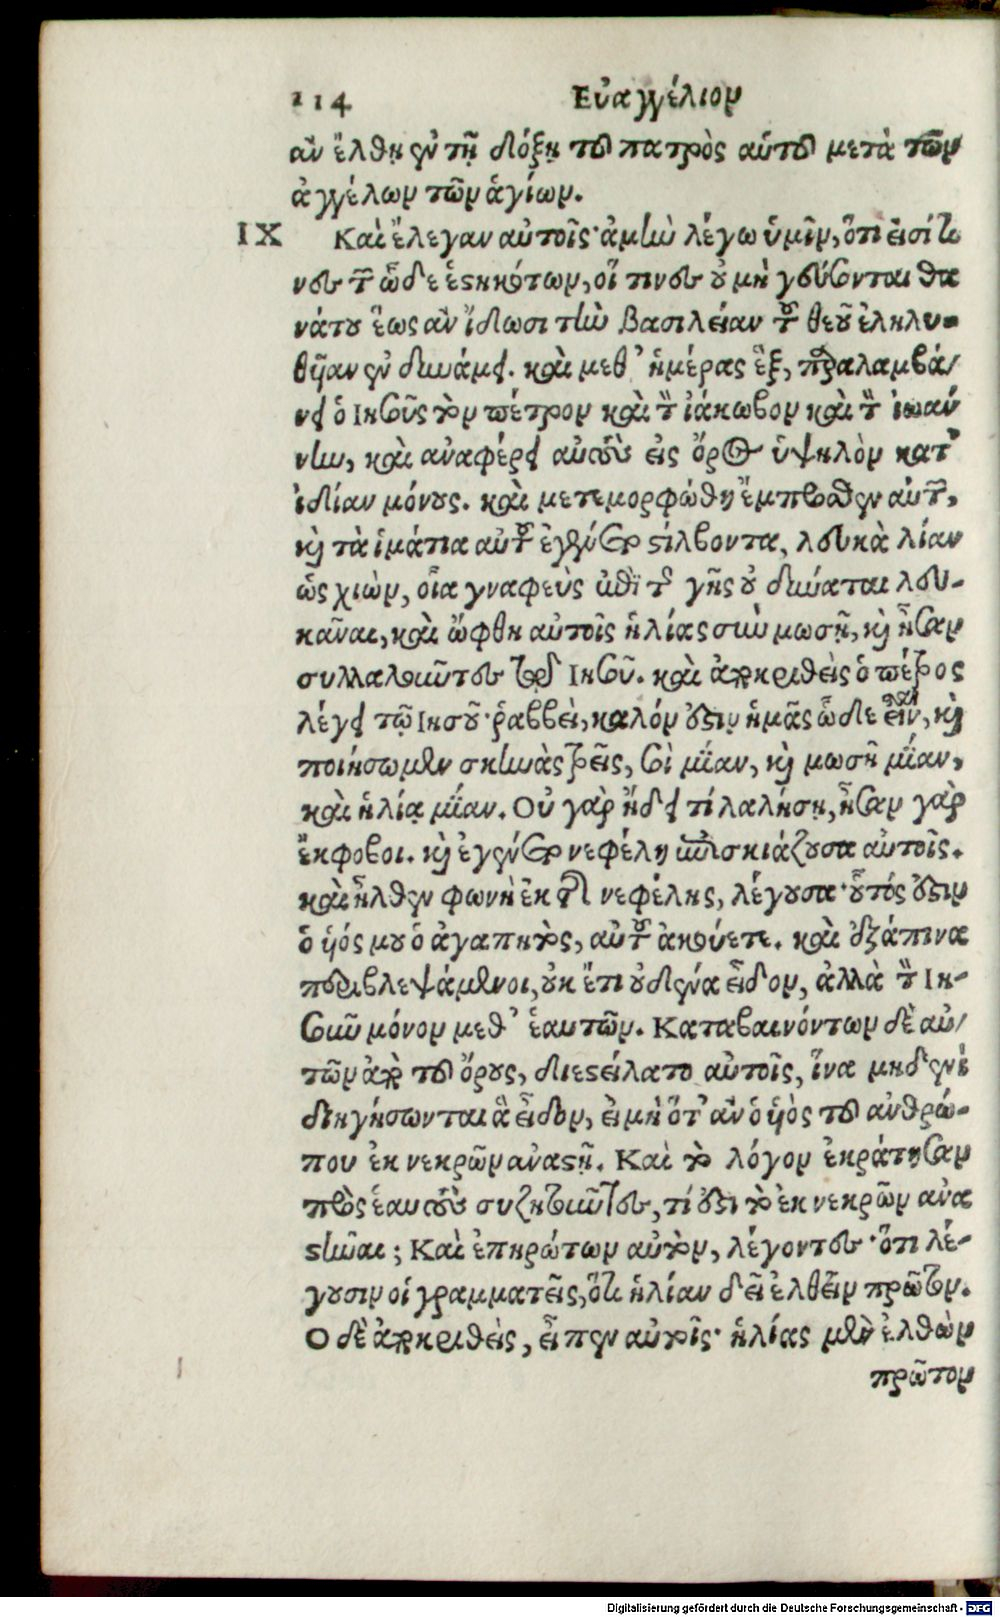 114 Εὐαγγέλιον
ἂν ἔλθῃ ἐν τῇ δόξῃ τοῦ πατρὸς αὑτοῦ μετὰ τῶν
ἀγγέλων τῶν ἁγίων.
IX Καὶ ἔλεγεν αὐτοῖς· ἀμὴν λέγω ὑμῖν, ὅτι εἰσί τι
νες τῶν ὧδε ἑστηκότων, οἵ τινες οὐ μὴ γεύσονται θα
νάτου ἕως ἂν ἴδωσι τὴν βασιλείαν τοῦ θεοῦ ἐληλυ-
θῦιαν ἐν δυνάμει. καὶ μεθ' ἡμέρας ἓξ, παραλαμβά/
νει ὁ Ιησοῦς τὸν πέτρον καὶ τὸν ἰάκωβον καὶ τὸν ἰωάν
νην, καὶ ἀναφέρει αὐτοὺς εἰς ὄρος ὑψηλὸν κατ'
ἰδίαν μόνους. καὶ μετεμορφώθη ἔμπροσθεν αὐτῶν,
καὶ τὰ ἱμάτια αὐτοῦ ἐγένετο στίλβοντα, λευκὰ λίαν
ὡς χιὼν, οἷα γναφεὺς ἐπὶ τῆς γῆς οὐ δύναται λευ-
κᾶναι, καὶ ὤφθη αὐτοῖς ἡλίας σὺν μωσῇ, καὶ ἦσαν
συλλαλοῦντες τῷ Ιησοῦ. καὶ ἀποκριθεὶς ὁ πέτρος
λέγει τῷ Ιησοῦ· ῥαββεὶ, καλόν ἐστιν ἡμᾶς ὧδε εἶναι, καὶ
ποιήσωμεν σκηνὰς τρεῖς, σοὶ μίαν, καὶ μωσῇ μίαν,
καὶ ἡλίᾳ μίαν. Οὐ γὰρ ᾔδει τί λαλήσῃ, ἦσαν γὰρ
ἔκφοβοι. καὶ ἐγένετο νεφέλη ἐπισκιάζουσα αὐτοῖς.
καὶ ἦλθεν φωνὴ ἐκ τῆς νεφέλης, λέγουσα· οὗτός ἐστιν
ὁ ὑιός μου ὁ ἀγαπητὸς, αὐτοῦ ἀκούετε. καὶ ἐξάπινα
περιβλεψάμενοι, οὐκ ἔτι οὐδένα εἶδον, ἀλλὰ τὸν Ιη-
σοῦν μόνον μεθ' ἑαυτῶν. Καταβαινόντων δὲ αὐ/
τῶν ἀπὸ τοῦ ὄρους, διεστείλατο αὐτοῖς, ἵνα μηδενὶ
διηγήσωνται ἃ εἶδον, εἰ μὴ ὅτ' ἂν ὁ ὑιὸς τοῦ ἀνθρώ-
που ἐκ νεκρῶν ἀναστῇ. Καὶ τὸν λόγον ἐκράτησαν
πρὸς ἑαυτοὺς συζητοῦντες, τί ἐστι τὸ ἐκ νεκρῶν ἀνα
στῆναι; Καὶ ἐπηρώτων αὐτὸν, λέγοντες· ὅτι λέ-
γουσιν οἱ γραμματεῖς, ὅτι ἡλίαν δεῖ ἐλθεῖν πρῶτον.
Ο δὲ ἀποκριθεὶς, εἶπεν αὐτοῖς· ἡλίας μὲν ἐλθὼν
πρῶτον
Digitalisierung gefördert durch die Deutsche Forschungsgemeinschaft - DFG